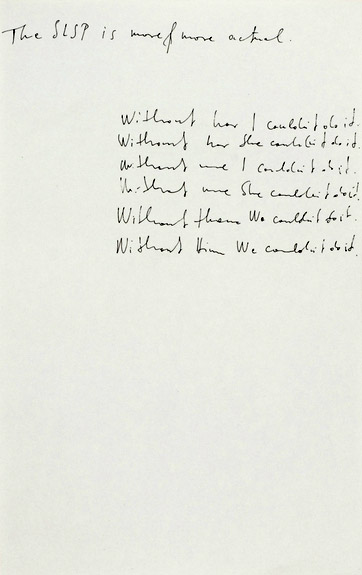 The SLSP is more & more actual.
Without her I couldn't do it.
Without her She couldn't do it.
Without me I couldn't do it.
Without me She couldn't do it.
Without them We couldn't do it.
Without Him We couldn't do it.